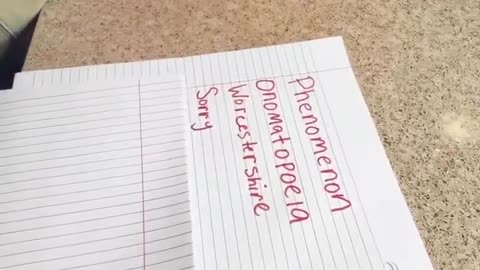 Phenomenon
Onomatopoeia
Worcestershire
Sorry